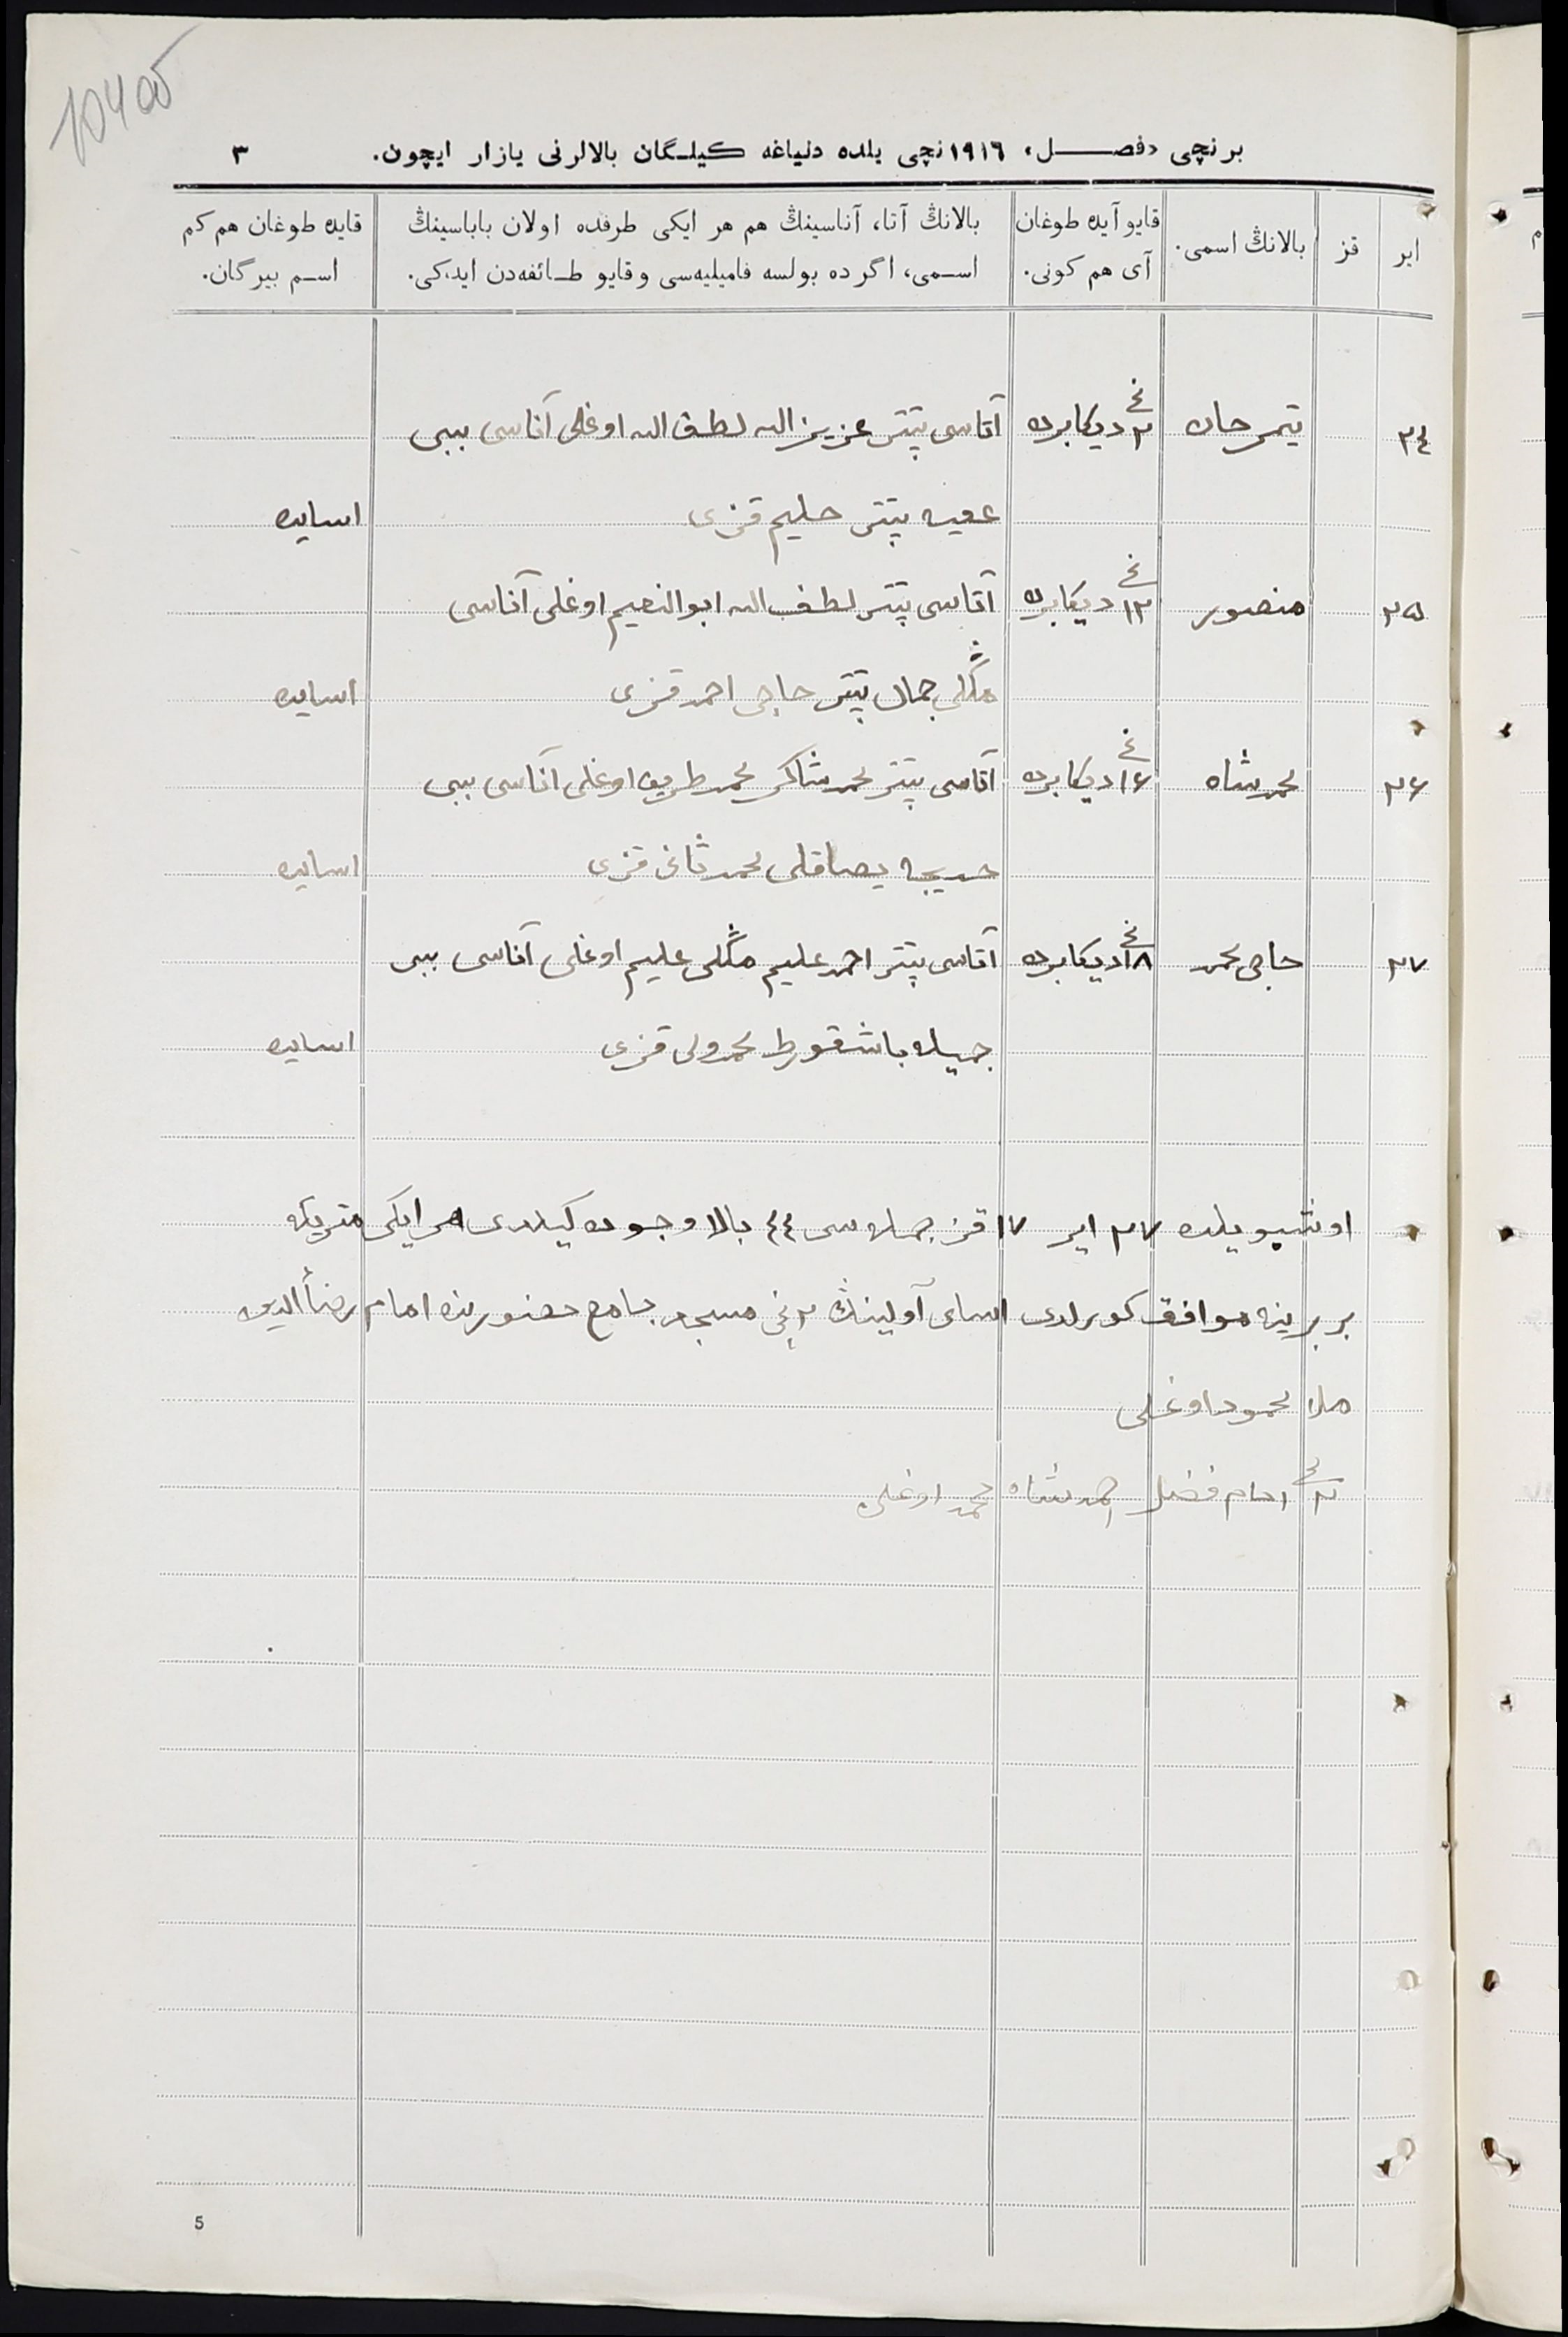 10400
برنچی «فصل» ١٩١٦نچی یلده دنیاغه کیلگان بالالرنی یازار ایچون. ٣
ایر
قز
بالانڭ اسمی.
قایو آیده طوغان
آی هم کونی.
بالانڭ آتا، آناسینڭ هم هر ایکی طرفده اولان باباسینڭ
اسمی، اگر ده بولسه فامیلیه‌سی وقایو طائفه‌دن ایدکی.
قایده طوغان هم کم
اسم بیرگان.
٢٤ تیمرجان ٢ نچی دیکابرده آتاسی تپتر عزیزالله لطف الله اوغلی آناسی بیبی
عفیفه تپتر حلیم قزی اسایده
٢٥ منصور ١٢ نچی دیکابرده آتاسی تپتر لطف الله ابوالنعیم اوغلی آناسی
مڭلی جمال تپتر حاجی احمد قزی اسایده
٢٦ محمدشاه ١٦ نچی دیکابرده آتاسی تپتر محمدشاکر محمدظریف اوغلی آناسی بیبی
خدیجه یصاقلی محمدثانی قزی اسایده
٢٧ حاجی محمد ١٨ نچی دیکابرده آتاسی تپتر احمدعلیم مڭلی علیم اوغلی آناسی بیبی
جمیله باشقورط محمدولی قزی اسایده
اوشبو یلده ٢٧ ایر ١٧ قز جمله‌سی ٤٤ بالا وجوده کیلدی هر ایکی متریکه
بر برینه موافق کورلدی اسای آولینڭ ٢ نچی مسجد جامع حضورینه امام رضاألدین
ملا محمود اوغلی
٢ نچی امام فضل احمدشاه محمد اوغلی
5